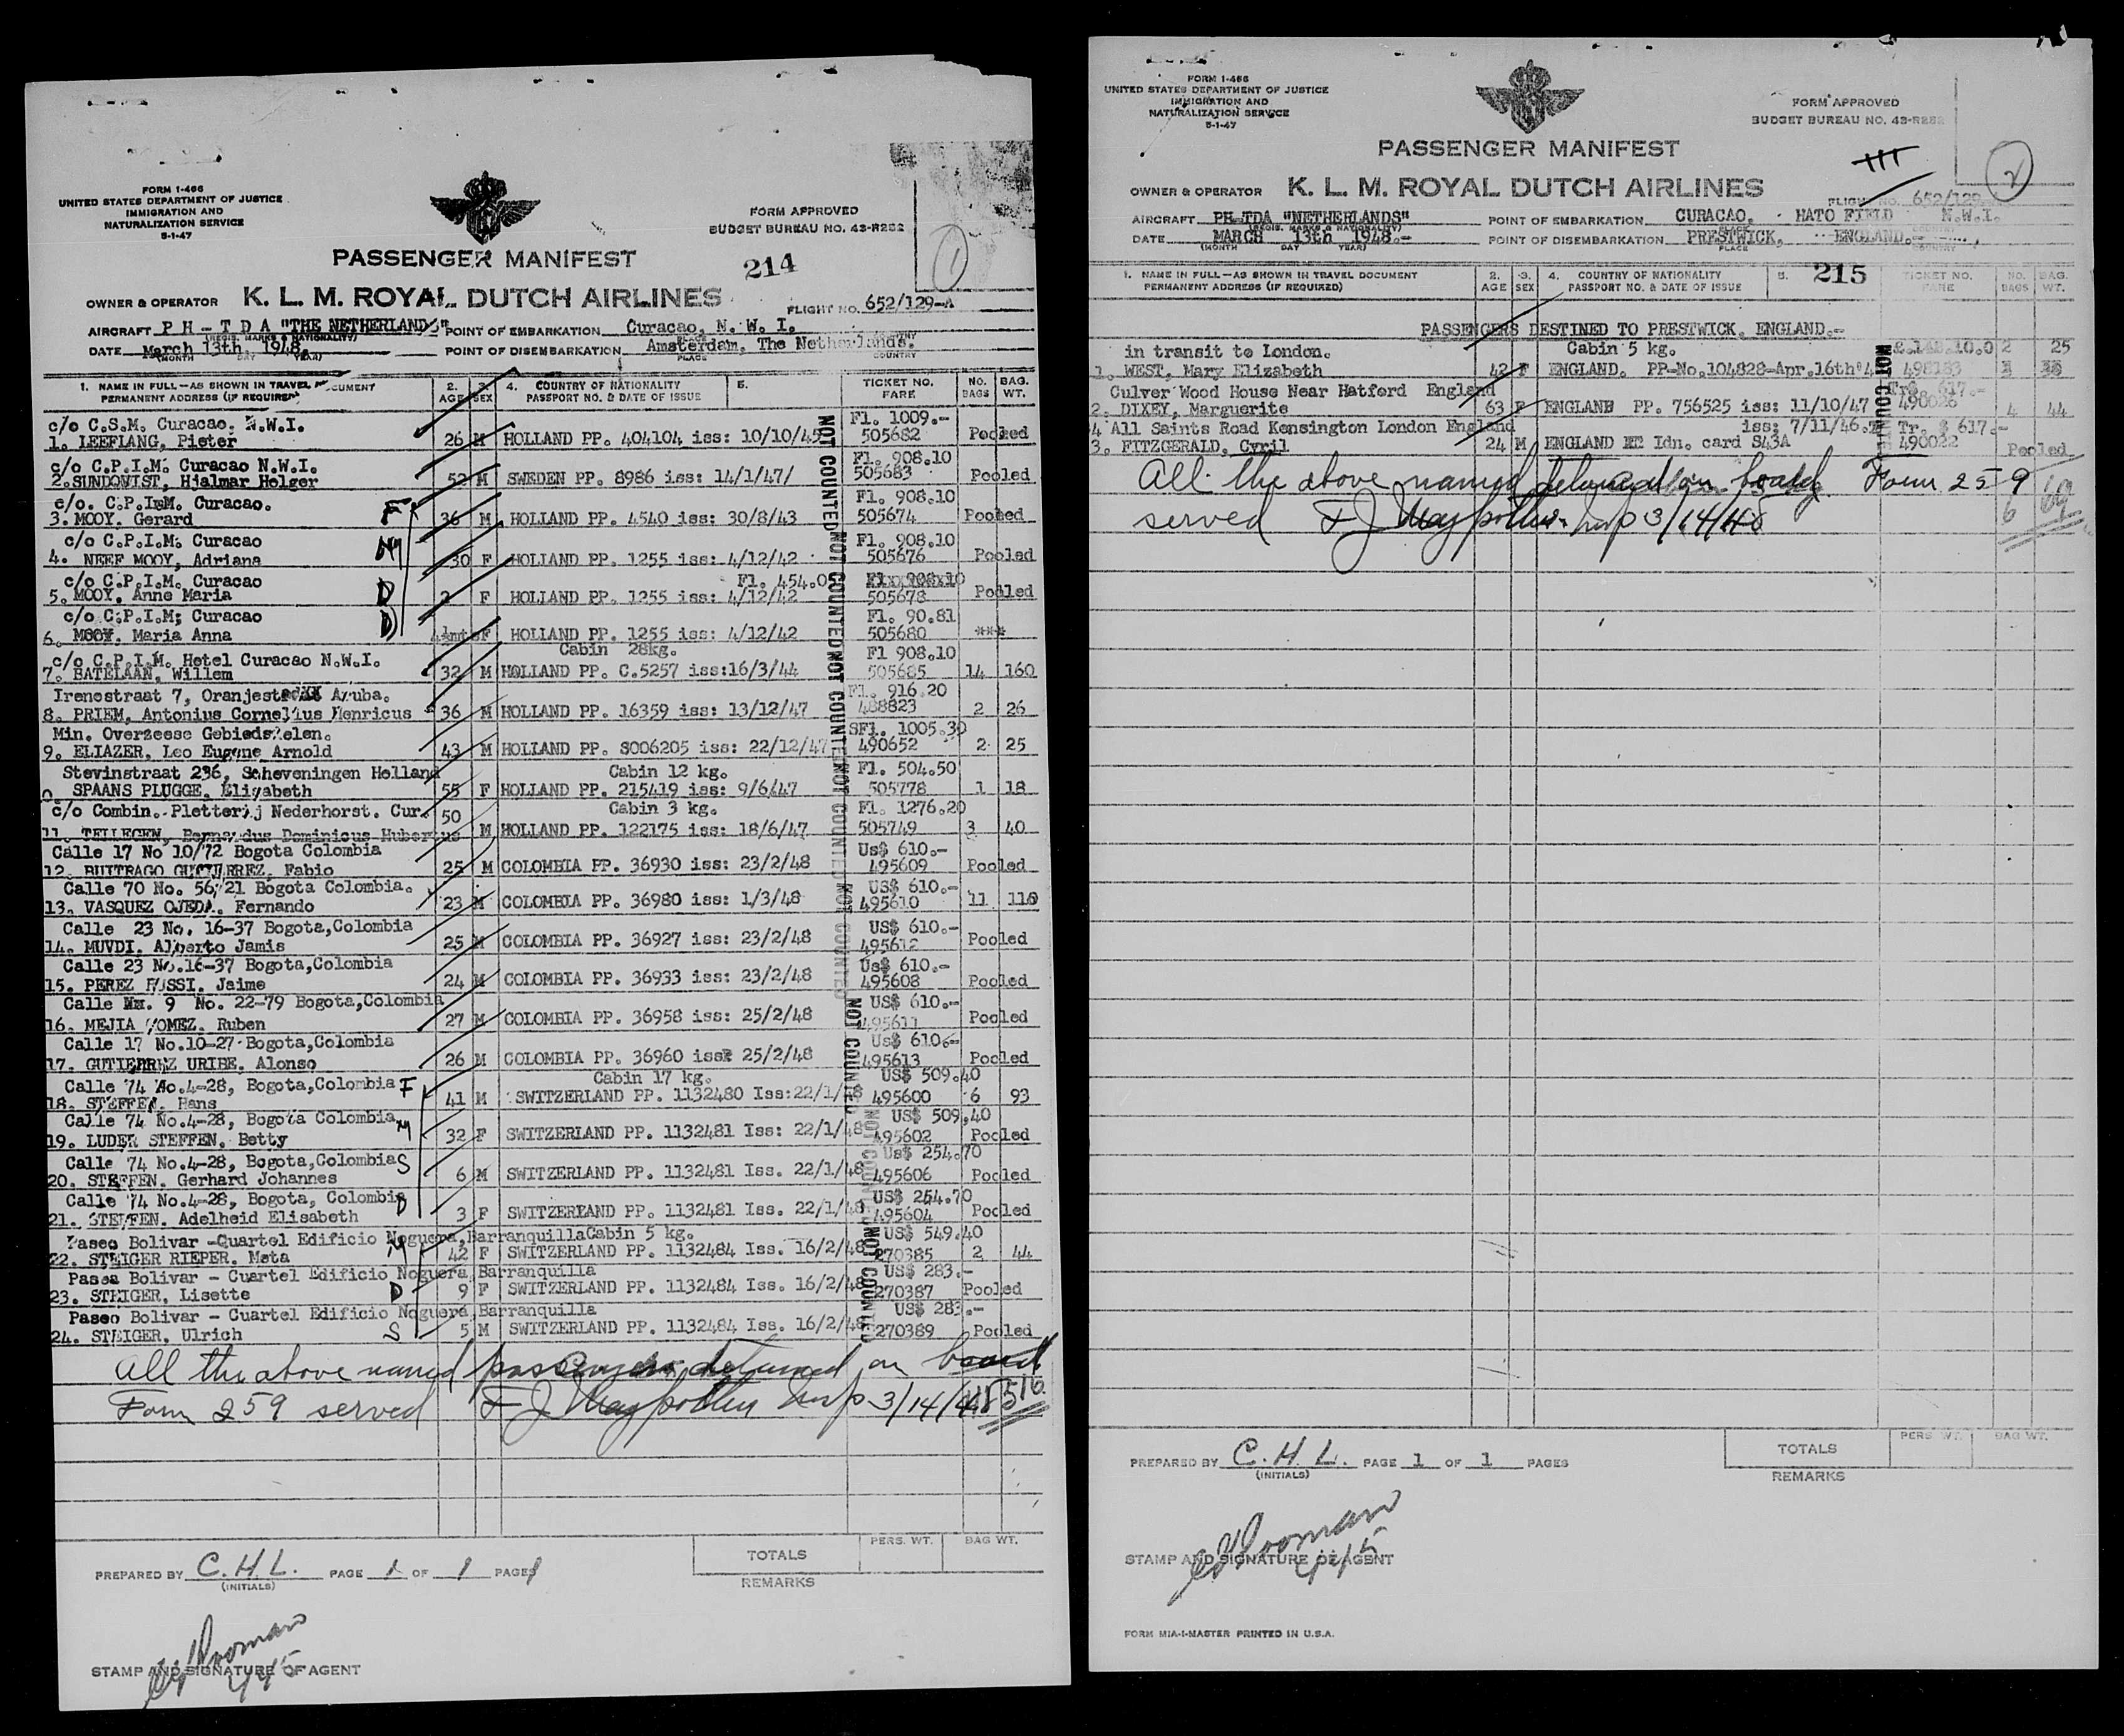 FORM I-466
UNITED STATES DEPARTMENT OF JUSTICE
IMMIGRATION AND
NATURALIZATION SERVICE
5-1-47
FORM APPROVED
BUDGET BUREAU NO. 43-R282
1
PASSENGER MANIFEST
214
OWNER & OPERATOR K. L. M. ROYAL DUTCH AIRLINES FLIGHT NO. 652/129-A
AIRCRAFT P H - T D A "THE NETHERLANDS" POINT OF EMBARKATION Curacao, N. W. I.
(REGIS. MARKS & NATIONALITY)
DATE March 13th 1948. POINT OF DISEMBARKATION Amsterdam, The Netherlands.
(MONTH DAY YEAR) PLACE COUNTRY
1. NAME IN FULL—AS SHOWN IN TRAVEL DOCUMENT 2. 3. 4. COUNTRY OF NATIONALITY 5. TICKET NO. NO. BAG.
PERMANENT ADDRESS (IF REQUIRED) AGE SEX PASSPORT NO. & DATE OF ISSUE FARE BAGS WT.
c/o C.S.M. Curacao. N.W.I. Fl. 1009.-
1. LEEFLANG, Pieter 26 M HOLLAND PP. 404104 iss: 10/10/45 505682 Pooled
c/o C.P.I.M. Curacao N.W.I. Fl. 908.10
2. SUNDQWIST, Hjalmar Holger 52 M SWEDEN PP. 8986 iss: 14/1/47/ 505683 Pooled
c/o. C.P.I.M. Curacao. F Fl. 908.10
3. MOOY. Gerard 36 M HOLLAND PP. 4540 iss: 30/8/43 505674 Pooled
c/o C.P.I.M. Curacao M Fl. 908.10
4. NEEF MOOY, Adriana 30 F HOLLAND PP. 1255 iss: 4/12/42 505676 Pooled
c/o C.P.I.M. Curacao D Fl. 454.0
5. MOOY. Anne Maria 2 F HOLLAND PP. 1255 iss: 4/12/42 505678 Pooled
c/o C.P.I.M; Curacao D Fl. 90.81
6. MOOY. Maria Anna F HOLLAND PP. 1255 iss: 4/12/42 505680 ***
c/o C.P.I.M. Hotel Curacao N.W.I. Cabin 28kg. Fl 908.10
7. BATELAAN, Willem 32 M HOLLAND PP. C.5257 iss:16/3/44 505685 14 160
Irenestraat 7, Aruba. Fl. 916.20
8. PRIEM, Antonius Cornelius Henricus 36 M HOLLAND PP. 16359 iss: 13/12/47 488823 2 26
Min. Overzeese SFl. 1005.30
9. ELIAZER, Leo Eugene Arnold 43 M HOLLAND PP. S006205 iss: 22/12/47 490652 2 25
Stevinstraat 236, Scheveningen Holland Cabin 12 kg. Fl. 504.50
0. SPAANS PLUGGE, Elisabeth 55 F HOLLAND PP. 215419 iss: 9/6/47 505778 1 18
c/o Combin. Pletterij Nederhorst. Cur. 50 Cabin 3 kg. Fl. 1276.20
11. TELLEGEN, Bernardus Dominicus Hubertus M HOLLAND PP. 122175 iss: 18/6/47 505749 3 40
Calle 17 No 10/72 Bogota Colombia Us$ 610.-
12. BUITRAGO GUTIERREZ, Fabio 25 M COLOMBIA PP. 36930 iss: 23/2/48 495609 Pooled
Calle 70 No. 56/21 Bogota Colombia. US$ 610.-
13. VASQUEZ OJEDA. Fernando 23 M COLOMBIA PP. 36980 iss: 1/3/48 495610 11 110
Calle 23 No. 16-37 Bogota,Colombia US$ 610.-
14. MUVDI. Alberto Jamis 25 M COLOMBIA PP. 36927 iss: 23/2/48 495612 Pooled
Calle 23 No.16-37 Bogota,Colombia Us$ 610.-
15. PEREZ Jaime 24 M COLOMBIA PP. 36933 iss: 23/2/48 495608 Pooled
Calle 9 No. 22-79 Bogota,Colombia US$ 610.-
16. MEJIA GOMEZ. Ruben 27 M COLOMBIA PP. 36958 iss: 25/2/48 495611 Pooled
Calle 17 No.10-27 Bogota,Colombia Us$ 610.-
17. GUTIERREZ URIBE, Alonso 26 M COLOMBIA PP. 36960 iss: 25/2/48 495613 Pooled
Calle 74 No.4-28, Bogota,Colombia F Cabin 17 kg. US$ 509.40
18. STEFFEN. Hans 41 M SWITZERLAND PP. 1132480 Iss:22/1/48 495600 6 93
Calle 74 No.4-28, Bogota Colombia M US$ 509,40
19. LUDER STEFFEN. Betty 32 F SWITZERLAND PP. 1132481 Iss: 22/1/48 495602 Pooled
Calle 74 No.4-28, Bogota,Colombia S Us$ 254.70
20. STEFFEN. Gerhard Johannes 6 M SWITZERLAND PP. 1132481 Iss. 22/1/48 495606 Pooled
Calle 74 No.4-28, Bogota, Colombia D US$ 254.70
21. STEFFEN. Adelheid Elisabeth 3 F SWITZERLAND PP. 1132481 Iss. 22/1/48 495604 Pooled
Paseo Bolivar -Quartel Edificio Noguera,Barranquilla Cabin 5 kg. US$ 549.40
22. STEIGER RIEPER. Meta M 42 F SWITZERLAND PP. 1132484 Iss. 16/2/48 270385 2 44
Pasea Bolivar - Cuartel Edificio Noguera,Barranquilla US$ 283.-
23. STEIGER, Lisette D 9 F SWITZERLAND PP. 1132484 Iss. 16/2/48 270387 Pooled
Paseo Bolivar - Cuartel Edificio Noguera,Barranquilla US$ 283.-
24. STEIGER, Ulrich S 5 M SWITZERLAND PP. 1132484 Iss. 16/2/48 270389 Pooled
NOT COUNTED NOT COUNTED NOT COUNTED NOT COUNTED NOT COUNTED NOT COUNTED NOT COUNTED NOT COUNTED
All the above named passengers detained on board
Form 259 served F J Insp 3/14/48 516
TOTALS PERS. WT. BAG WT.
PREPARED BY C.H.L. PAGE 1 OF 1 PAGES
(INITIALS) REMARKS
STAMP AND SIGNATURE OF AGENT
FORM I-466
UNITED STATES DEPARTMENT OF JUSTICE
IMMIGRATION AND
NATURALIZATION SERVICE
5-1-47
FORM APPROVED
BUDGET BUREAU NO. 43-R282
2
PASSENGER MANIFEST
OWNER & OPERATOR K. L. M. ROYAL DUTCH AIRLINES FLIGHT NO. 652/129-A
AIRCRAFT PH-TDA "NETHERLANDS" POINT OF EMBARKATION CURACAO. HATO FIELD N.W.I.
(REGIS. MARKS & NATIONALITY) PLACE COUNTRY
DATE MARCH 13th 1948.- POINT OF DISEMBARKATION PRESTWICK, ENGLAND.-
(MONTH DAY YEAR) PLACE COUNTRY
1. NAME IN FULL—AS SHOWN IN TRAVEL DOCUMENT 2. 3. 4. COUNTRY OF NATIONALITY 5. 215 TICKET NO. NO. BAG.
PERMANENT ADDRESS (IF REQUIRED) AGE SEX PASSPORT NO. & DATE OF ISSUE FARE BAGS WT.
PASSENGERS DESTINED TO PRESTWICK. ENGLAND.-
in transit to London. Cabin 5 kg. 2 25
1. WEST, Mary Elizabeth 42 F ENGLAND. PP-No.104828-Apr.16th'4 498183
Culver Wood House Near Hatford England Tr$ 617.-
2. DIXEY, Marguerite 63 F ENGLAND PP. 756525 iss: 11/10/47 490026 4 44
4 All Saints Road Kensington London England iss: 7/11/46. Tr. $ 617.-
3. FITZGERALD, Cyril 24 M ENGLAND Idn. card S43A 490022 Pooled
NOT COUNTED
All the above named detained on board. Form 259
served F J Insp 3/14/48 6 69
TOTALS PERS. WT. BAG WT.
PREPARED BY C.H.L. PAGE 1 OF 1 PAGES
(INITIALS) REMARKS
STAMP AND SIGNATURE OF AGENT
FORM MIA-I-MASTER PRINTED IN U.S.A.